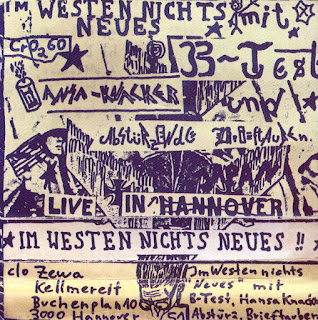 IM WESTEN NICHTS mit
NEUES
CrO2 60
B-Test
HANSA-KNACKER
und
Abstürzende Brieftauben.
LIVE IN HANNOVER
IM WESTEN NICHTS NEUES !!
c/o Zewa
Kellmereit
Buchenplan 10
3000 Hannover 51
Im Westen nichts
Neues" mit
B-Test, Hansa Knacker
Abstürz. Brieftauben